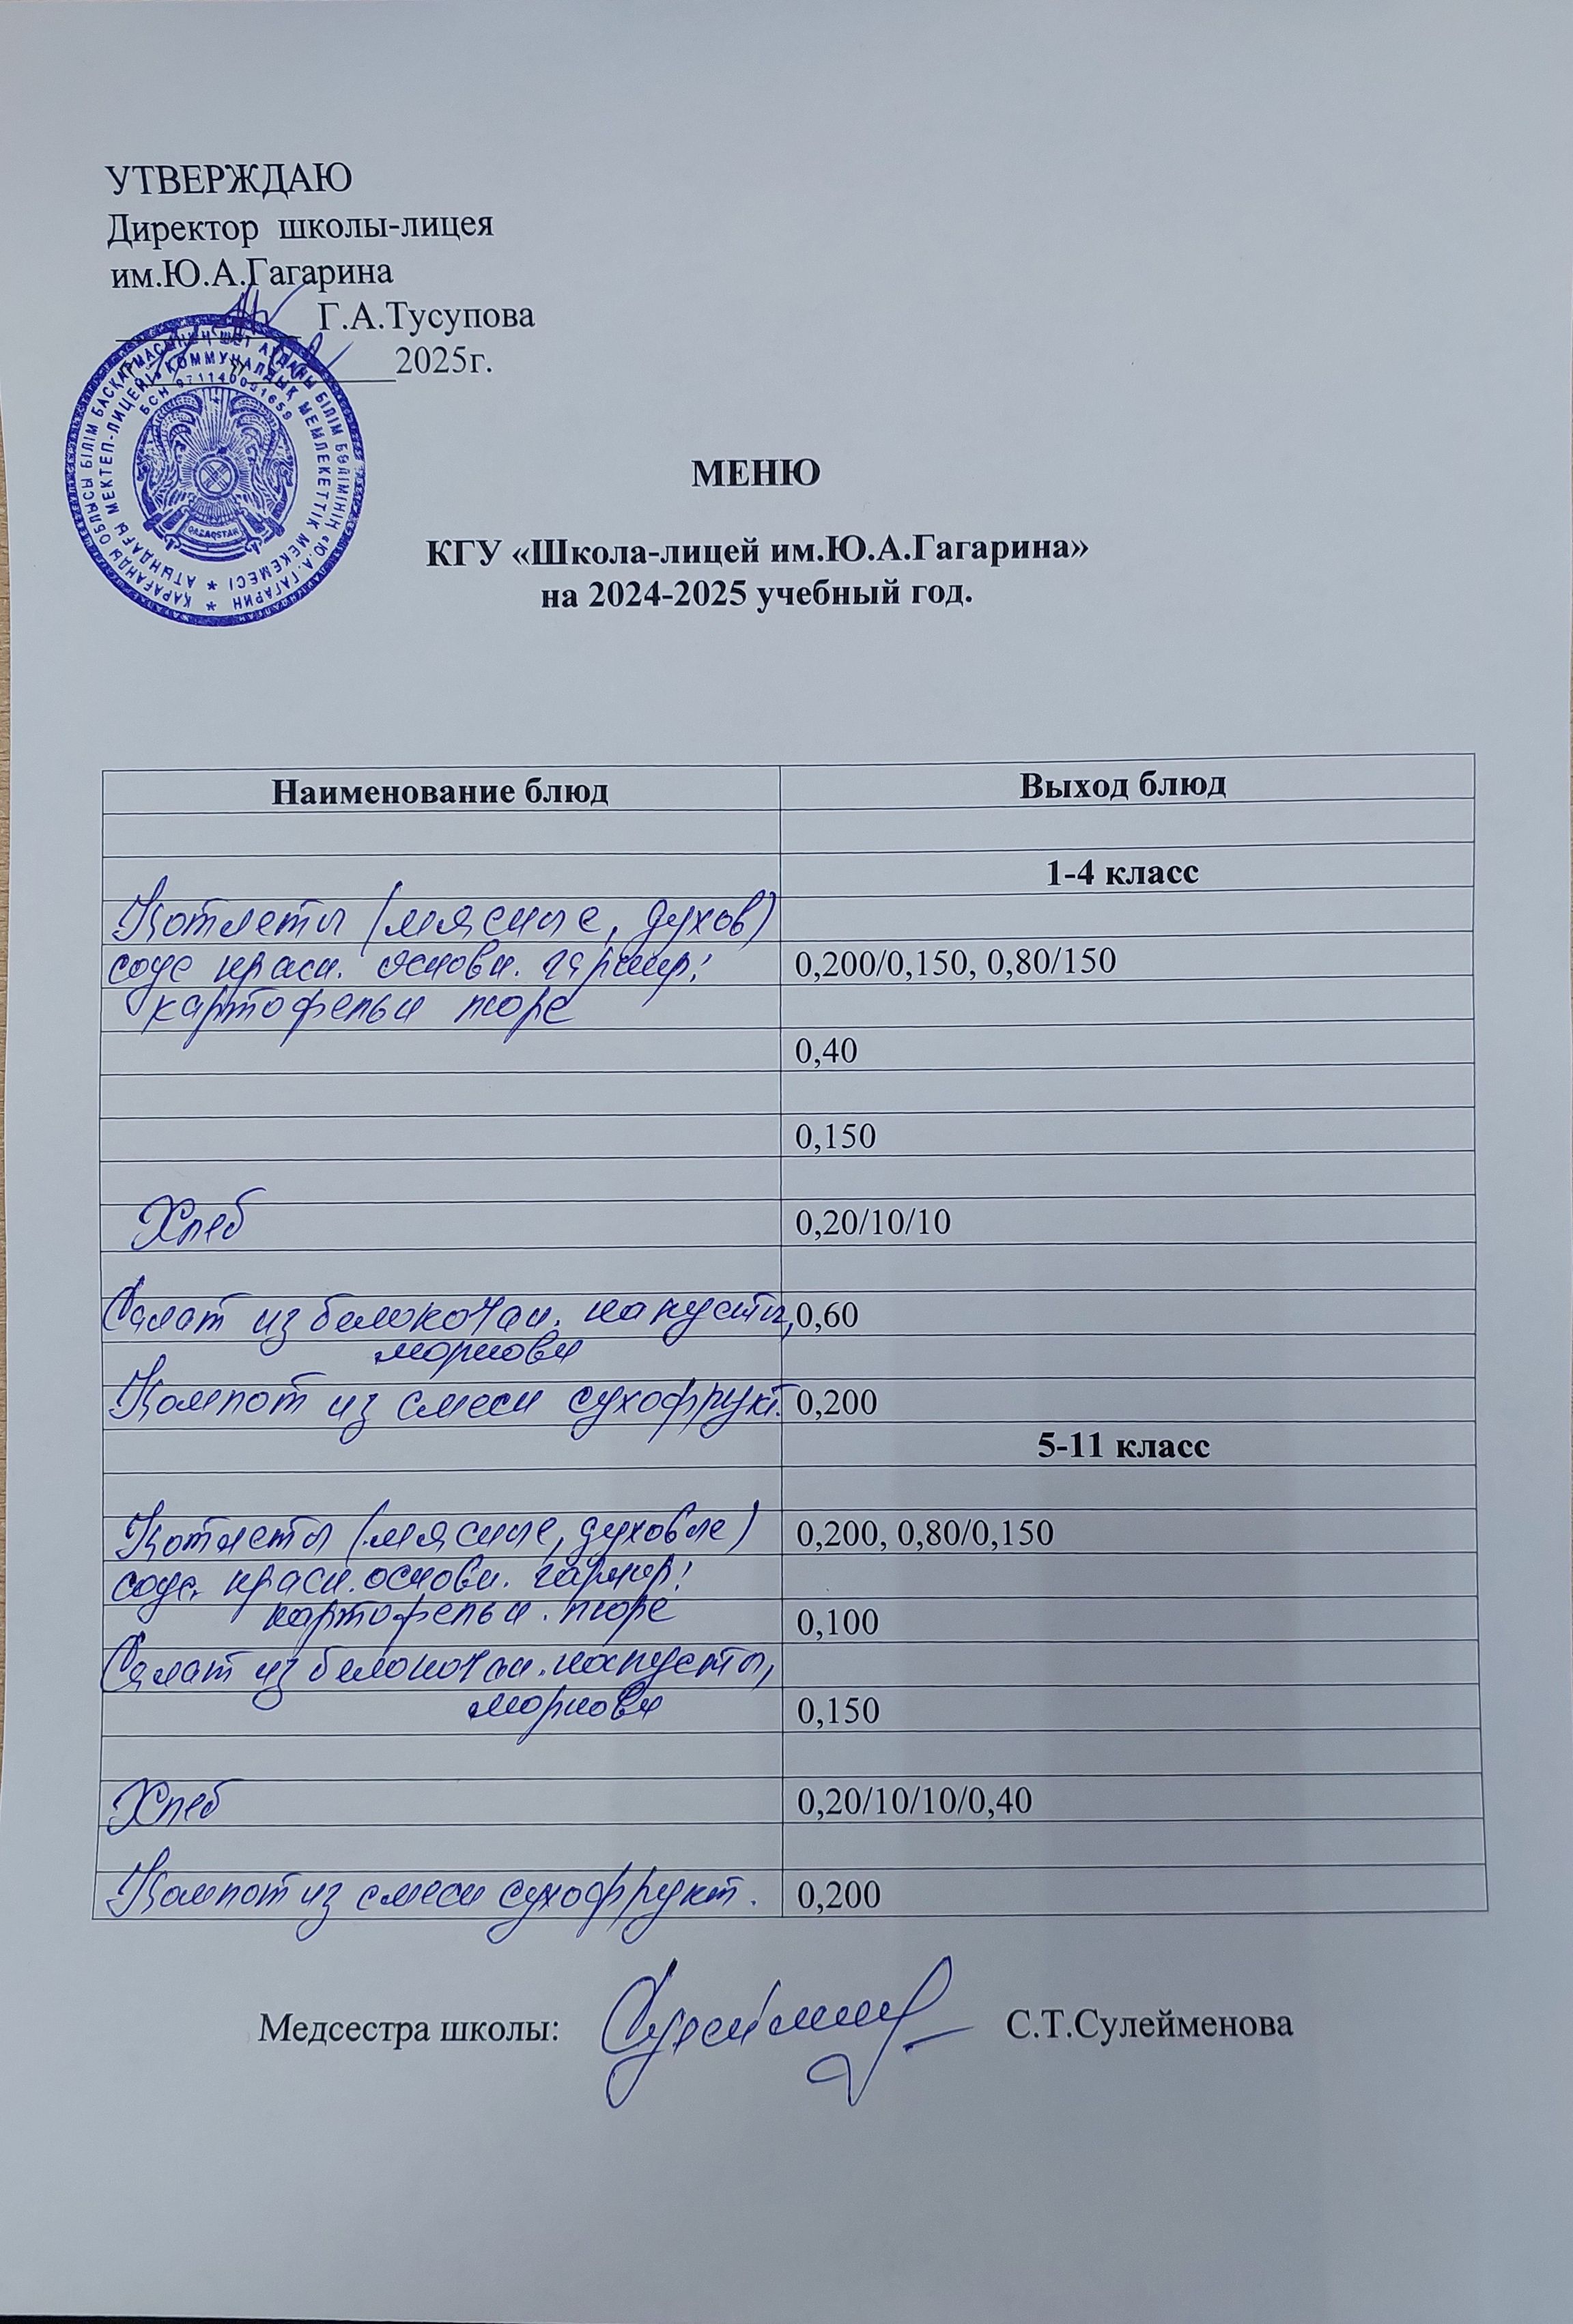 УТВЕРЖДАЮ
Директор школы-лицея
им.Ю.А.Гагарина
Г.А.Тусупова
2025г.
БСН 971140001659
QAZAQSTAN
МЕНЮ
КГУ «Школа-лицей им.Ю.А.Гагарина»
на 2024-2025 учебный год.
Наименование блюд Выход блюд
1-4 класс
Котлеты (мясные, духов)
соус красн. основн. гарнир: 0,200/0,150, 0,80/150
картофельн пюре
0,40
0,150
Хлеб 0,20/10/10
Салат из белокочан. капусты, 0,60
моркови
Компот из смеси сухофрукт. 0,200
5-11 класс
Котлеты (мясные, духовые) 0,200, 0,80/0,150
соус. красн. основн. гарнир:
картофельн. пюре 0,100
Салат из белокочан. капусты,
моркови 0,150
Хлеб 0,20/10/10/0,40
Компот из смеси сухофрукт. 0,200
Медсестра школы: С.Т.Сулейменова